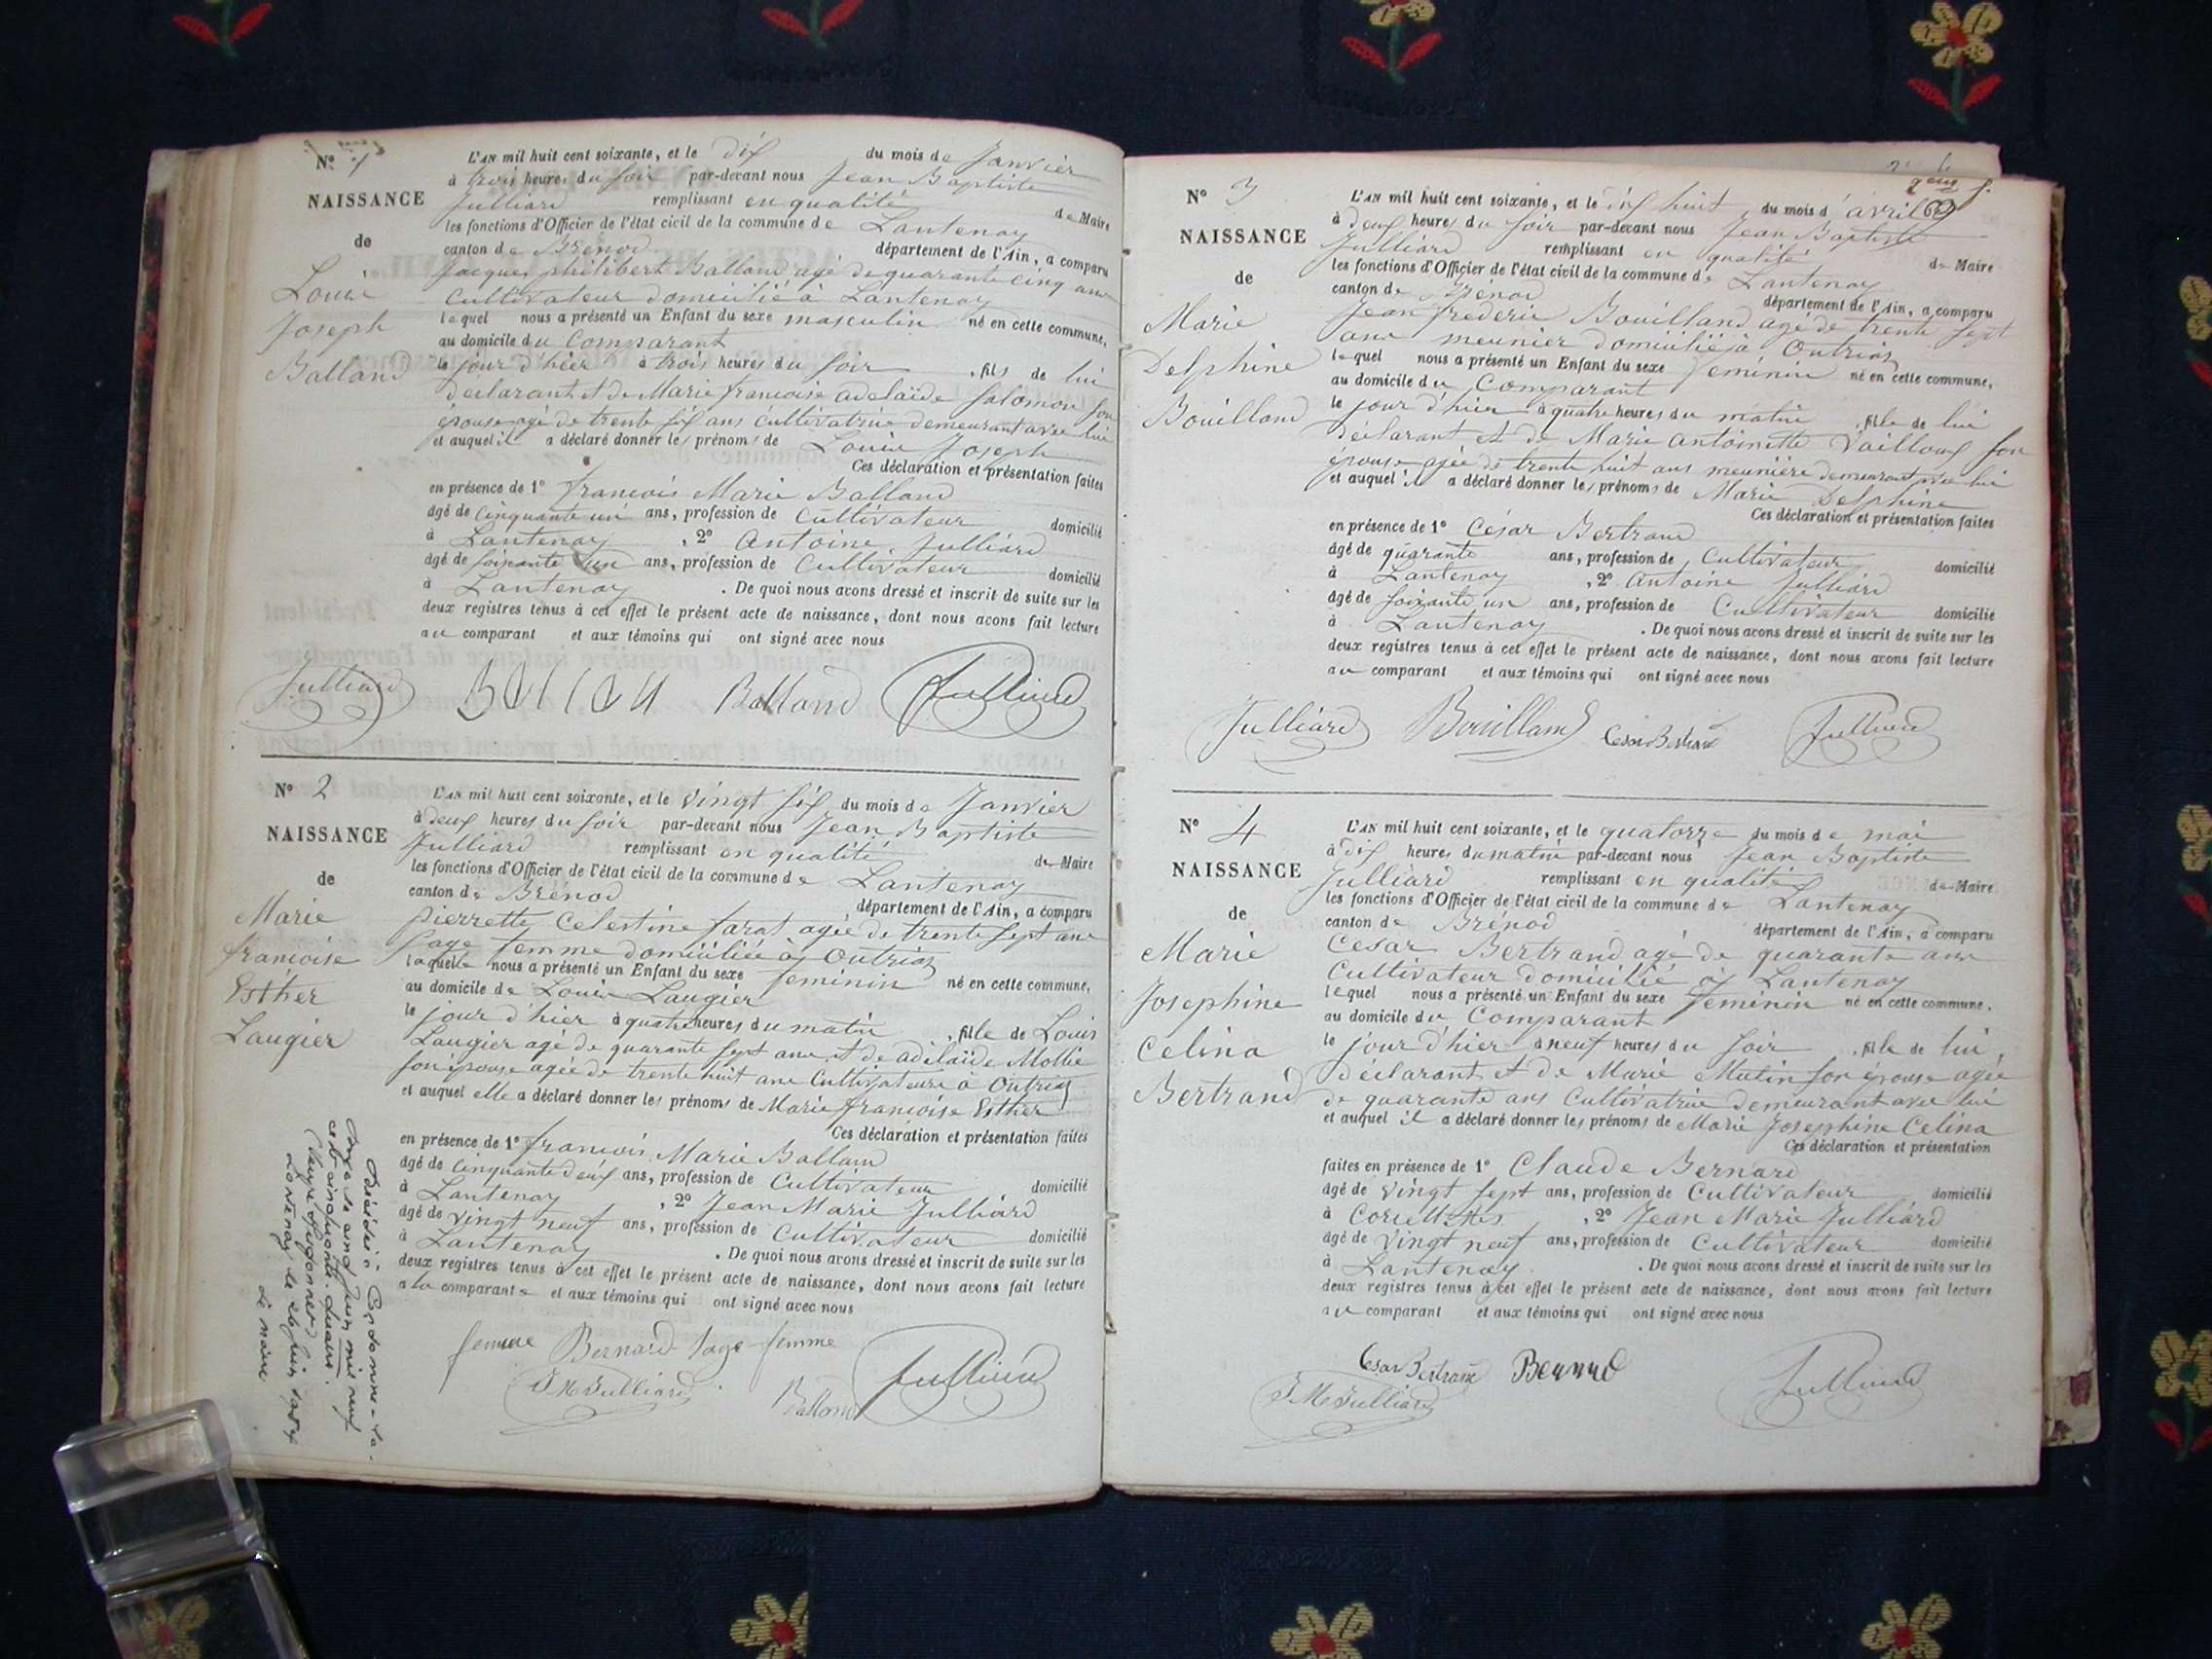 N° 1
NAISSANCE
de
Louis
Joseph
Balland
L'AN mil huit cent soixante, et le dix du mois de Janvier
à trois heures du soir par-devant nous Jean Baptiste
Julliard remplissant en qualité de Maire
les fonctions d'Officier de l'état civil de la commune de Lantenay
canton de Brénod département de l'Ain, a comparu
Jacques philibert Balland agé de quarante cinq ans
Cultivateur domicilié à Lantenay
lequel nous a présenté un Enfant du sexe masculin né en cette commune,
au domicile du Comparant
le jour d'hier à trois heures du soir, fils de lui
déclarant et de Marie francoise adelaïde Salomon son
épouse agé de trente six ans cultivatrice demeurant avec lui
et auquel il a déclaré donner les prénoms de Louis Joseph
Ces déclaration et présentation faites
en présence de 1° francois Marie Balland
âgé de cinquante un ans, profession de cultivateur domicilié
à Lantenay, 2° Antoine Julliard
âgé de soixante un ans, profession de Cultivateur domicilié
à Lantenay. De quoi nous avons dressé et inscrit de suite sur les
deux registres tenus à cet effet le présent acte de naissance, dont nous avons fait lecture
au comparant et aux témoins qui ont signé avec nous
Julliard Balland Julliard
N° 2
NAISSANCE
de
Marie
francoise
Esther
Laugier
L'AN mil huit cent soixante, et le vingt six du mois de Janvier
à deux heures du soir par-devant nous Jean Baptiste
Julliard remplissant en qualité de Maire
les fonctions d'Officier de l'état civil de la commune de Lantenay
canton de Brénod département de l'Ain, a comparu
pierrette Celestine farat agée de trente sept ans
sage femme domiciliée à Outriaz
laquelle nous a présenté un Enfant du sexe feminin né en cette commune,
au domicile de Louis Laugier
le jour d'hier à quatre heures du matin, fille de Louis
Laugier agé de quarante sept ans et de adelaïde Mollie
son épouse agée de trente huit ans Cultivateurs à Outriaz
et auquel elle a déclaré donner les prénoms de Marie francoise Esther
Ces déclaration et présentation faites
en présence de 1° francois Marie Balland
âgé de cinquante deux ans, profession de Cultivateur domicilié
à Lantenay, 2° Jean Marie Julliard
âgé de vingt neuf ans, profession de Cultivateur domicilié
à Lantenay. De quoi nous avons dressé et inscrit de suite sur les
deux registres tenus à cet effet le présent acte de naissance, dont nous avons fait lecture
a la comparante et aux témoins qui ont signé avec nous
femme Bernard sage-femme
J M Julliard Balland Julliard
juin mil neuf
cent cinquante
Lantenay le
Le maire
N° 3
NAISSANCE
de
Marie
Delphine
Bouilland
L'AN mil huit cent soixante, et le dix huit du mois d'avril
à deux heures du soir par-devant nous Jean Baptiste
Julliard remplissant en qualité de Maire
les fonctions d'Officier de l'état civil de la commune de Lantenay
canton de Brénod département de l'Ain, a comparu
Jean frederic Bouilland agé de trente sept
ans meunier domicilié à Outriaz
lequel nous a présenté un Enfant du sexe feminin né en cette commune,
au domicile du Comparant
le jour d'hier à quatre heures du matin, fille de lui
déclarant et de Marie Antoinette Vailloux son
épouse agée de trente huit ans meunière demeurant avec lui
et auquel il a déclaré donner les prénoms de Marie Delphine
Ces déclaration et présentation faites
en présence de 1° César Bertrand
âgé de quarante ans, profession de Cultivateur domicilié
à Lantenay, 2° Antoine Julliard
âgé de soixante un ans, profession de Cultivateur domicilié
à Lantenay. De quoi nous avons dressé et inscrit de suite sur les
deux registres tenus à cet effet le présent acte de naissance, dont nous avons fait lecture
au comparant et aux témoins qui ont signé avec nous
Julliard Bouilland Cesar Bertrand Julliard
N° 4
NAISSANCE
de
Marie
Josephine
Celina
Bertrand
L'AN mil huit cent soixante, et le quatorze du mois de mai
à dix heures du matin par-devant nous Jean Baptiste
Julliard remplissant en qualité de Maire
les fonctions d'Officier de l'état civil de la commune de Lantenay
canton de Brénod département de l'Ain, a comparu
Cesar Bertrand agé de quarante ans
Cultivateur domicilié à Lantenay
lequel nous a présenté un Enfant du sexe feminin né en cette commune,
au domicile du Comparant
le jour d'hier à neuf heures du soir, fille de lui
déclarant et de Marie Mutin son épouse agée
de quarante ans Cultivatrice demeurant avec lui
et auquel il a déclaré donner les prénoms de Marie Josephine Celina
Ces déclaration et présentation
faites en présence de 1° Claude Bernard
âgé de vingt sept ans, profession de Cultivateur domicilié
à Corcelles, 2° Jean Marie Julliard
âgé de vingt neuf ans, profession de Cultivateur domicilié
à Lantenay. De quoi nous avons dressé et inscrit de suite sur les
deux registres tenus à cet effet le présent acte de naissance, dont nous avons fait lecture
au comparant et aux témoins qui ont signé avec nous
Cesar Bertrand Bernard
J M Julliard Julliard